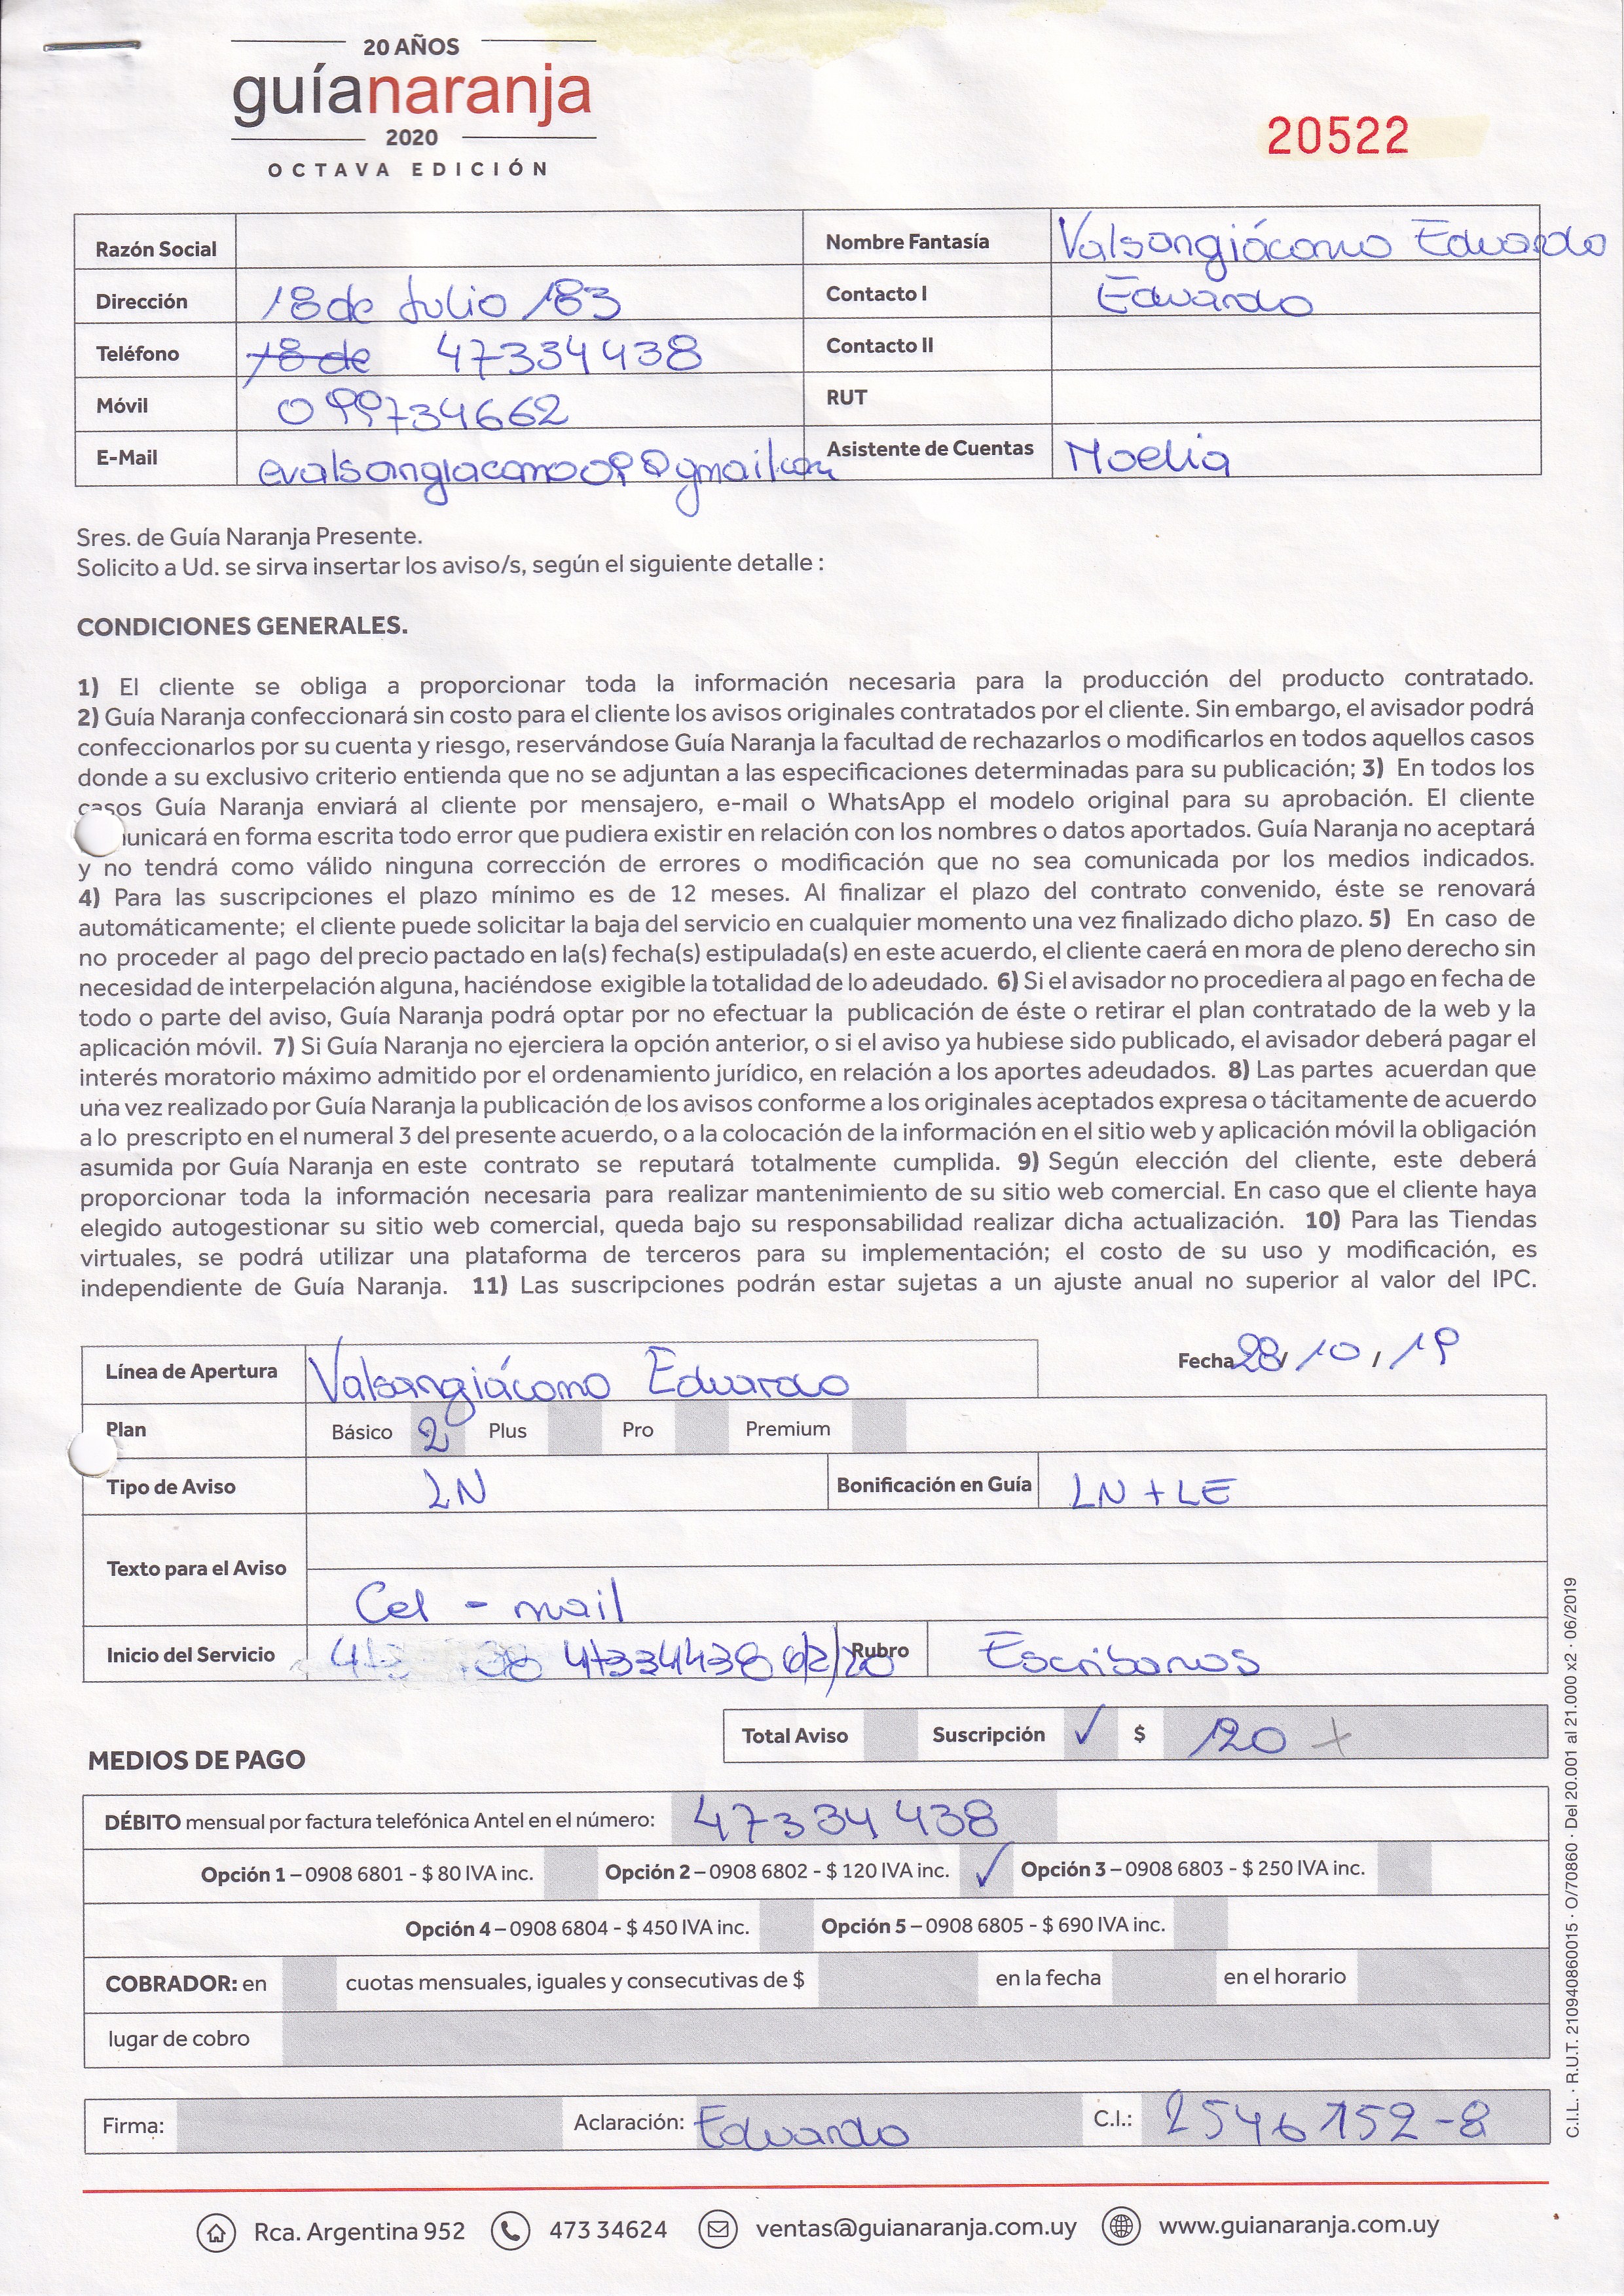 20 AÑOS
guíanaranja
2020
OCTAVA EDICIÓN
20522
Razón Social
Nombre Fantasía Valsangiácomo Eduardo
Dirección 18 de Julio 183
Contacto I Eduardo
Teléfono 18 de 47334438
Contacto II
Móvil 099734662
RUT
E-Mail evalsangiacomo09@gmail.com
Asistente de Cuentas Noelia
Sres. de Guía Naranja Presente.
Solicito a Ud. se sirva insertar los aviso/s, según el siguiente detalle :
CONDICIONES GENERALES.
1) El cliente se obliga a proporcionar toda la información necesaria para la producción del producto contratado.
2) Guía Naranja confeccionará sin costo para el cliente los avisos originales contratados por el cliente. Sin embargo, el avisador podrá
confeccionarlos por su cuenta y riesgo, reservándose Guía Naranja la facultad de rechazarlos o modificarlos en todos aquellos casos
donde a su exclusivo criterio entienda que no se adjuntan a las especificaciones determinadas para su publicación; 3) En todos los
casos Guía Naranja enviará al cliente por mensajero, e-mail o WhatsApp el modelo original para su aprobación. El cliente
unicará en forma escrita todo error que pudiera existir en relación con los nombres o datos aportados. Guía Naranja no aceptará
y no tendrá como válido ninguna corrección de errores o modificación que no sea comunicada por los medios indicados.
4) Para las suscripciones el plazo mínimo es de 12 meses. Al finalizar el plazo del contrato convenido, éste se renovará
automáticamente; el cliente puede solicitar la baja del servicio en cualquier momento una vez finalizado dicho plazo. 5) En caso de
no proceder al pago del precio pactado en la(s) fecha(s) estipulada(s) en este acuerdo, el cliente caerá en mora de pleno derecho sin
necesidad de interpelación alguna, haciéndose exigible la totalidad de lo adeudado. 6) Si el avisador no procediera al pago en fecha de
todo o parte del aviso, Guía Naranja podrá optar por no efectuar la publicación de éste o retirar el plan contratado de la web y la
aplicación móvil. 7) Si Guía Naranja no ejerciera la opción anterior, o si el aviso ya hubiese sido publicado, el avisador deberá pagar el
interés moratorio máximo admitido por el ordenamiento jurídico, en relación a los aportes adeudados. 8) Las partes acuerdan que
una vez realizado por Guía Naranja la publicación de los avisos conforme a los originales aceptados expresa o tácitamente de acuerdo
a lo prescripto en el numeral 3 del presente acuerdo, o a la colocación de la información en el sitio web y aplicación móvil la obligación
asumida por Guía Naranja en este contrato se reputará totalmente cumplida. 9) Según elección del cliente, este deberá
proporcionar toda la información necesaria para realizar mantenimiento de su sitio web comercial. En caso que el cliente haya
elegido autogestionar su sitio web comercial, queda bajo su responsabilidad realizar dicha actualización. 10) Para las Tiendas
virtuales, se podrá utilizar una plataforma de terceros para su implementación; el costo de su uso y modificación, es
independiente de Guía Naranja. 11) Las suscripciones podrán estar sujetas a un ajuste anual no superior al valor del IPC.
Línea de Apertura Valsangiácomo Eduardo
Fecha 28/ 10 / 19
Plan Básico 2 Plus Pro Premium
Tipo de Aviso LN Bonificación en Guía LN + LE
Texto para el Aviso
Cel - mail
Inicio del Servicio 47334438 6/2/20 Rubro Escribanos
Total Aviso Suscripción ✓ $ 120
MEDIOS DE PAGO
DÉBITO mensual por factura telefónica Antel en el número: 47334438
Opción 1 – 0908 6801 - $ 80 IVA inc. Opción 2 – 0908 6802 - $ 120 IVA inc. ✓ Opción 3 – 0908 6803 - $ 250 IVA inc.
Opción 4 – 0908 6804 - $ 450 IVA inc. Opción 5 – 0908 6805 - $ 690 IVA inc.
COBRADOR: en cuotas mensuales, iguales y consecutivas de $ en la fecha en el horario
lugar de cobro
Firma: Aclaración: Eduardo C.I.: 2546152-8
Rca. Argentina 952 473 34624 ventas@guianaranja.com.uy www.guianaranja.com.uy
C.I.L. · R.U.T. 210940860015 · O/70860 · Del 20.001 al 21.000 x2 · 06/2019